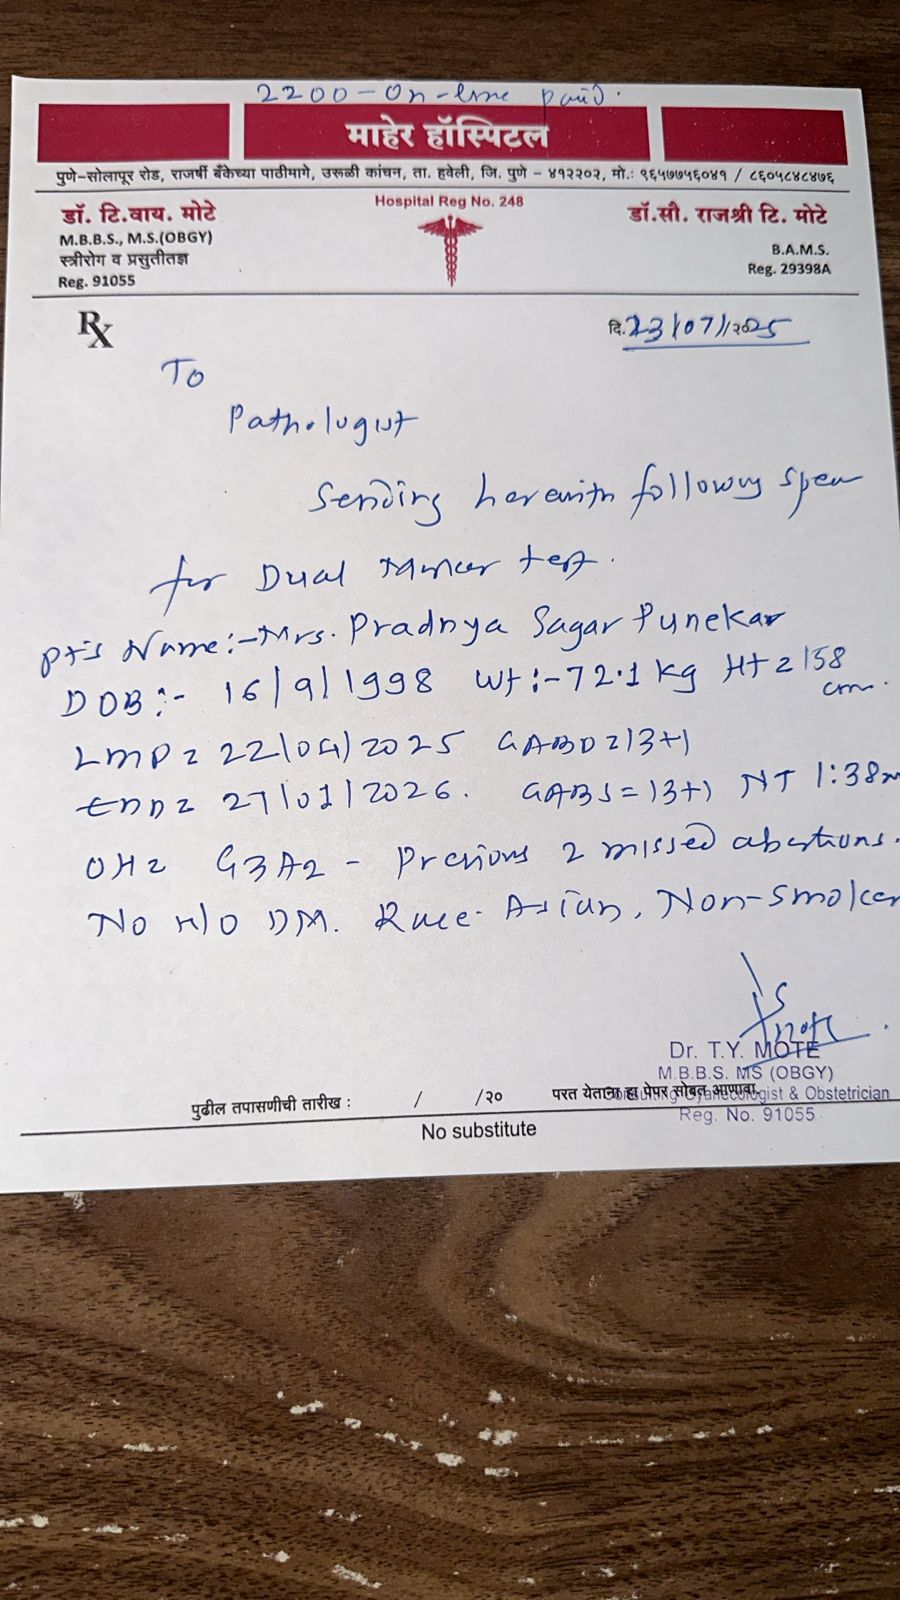 2200-On-line paid.
माहेर हॉस्पिटल
पुणे-सोलापूर रोड, राजर्षी बँकेच्या पाठीमागे, उरूळी कांचन, ता. हवेली, जि. पुणे - ४१२२०२, मो.: ९६५७७५६०४१ / ८६०५८४८४७६
Hospital Reg No. 248
डॉ. टि.वाय. मोटे
M.B.B.S., M.S.(OBGY)
स्त्रीरोग व प्रसुतीतज्ञ
Reg. 91055
डॉ.सौ. राजश्री टि. मोटे
B.A.M.S.
Reg. 29398A
Rx
दि. 23/07/२०25
To
Pathologist
Sending herewith following
for Dual Marker test.
Pt's Name:- Mrs. Pradnya Sagar Punekar
DOB:- 16/9/1998 Wt:-72.1 kg Ht=158 cm.
LMP= 22/04/2025 GABD=13+1
EDD= 27/01/2026. GABS=13+1 NT 1.38
OH= G3A2 - Previous 2 missed abortions.
No H/O DM. Race- Asian, Non-smoker
Dr. T.Y. MOTE
M.B.B.S. MS (OBGY)
Consulting Gynaecologist & Obstetrician
Reg. No. 91055
पुढील तपासणीची तारीख : / /२० परत येताना हा पेपर सोबत आणावा.
No substitute